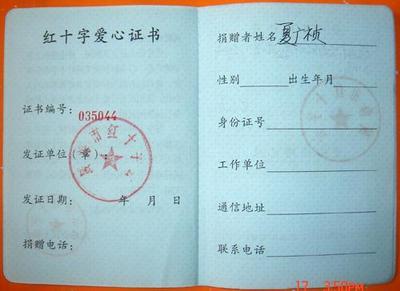 红十字爱心证书
证书编号：
035044
发证单位（章）：
发证日期：　年　月　日
捐赠电话：
捐赠者姓名
性别　出生年月
身份证号
工作单位
通信地址
联系电话
17 3:50PM